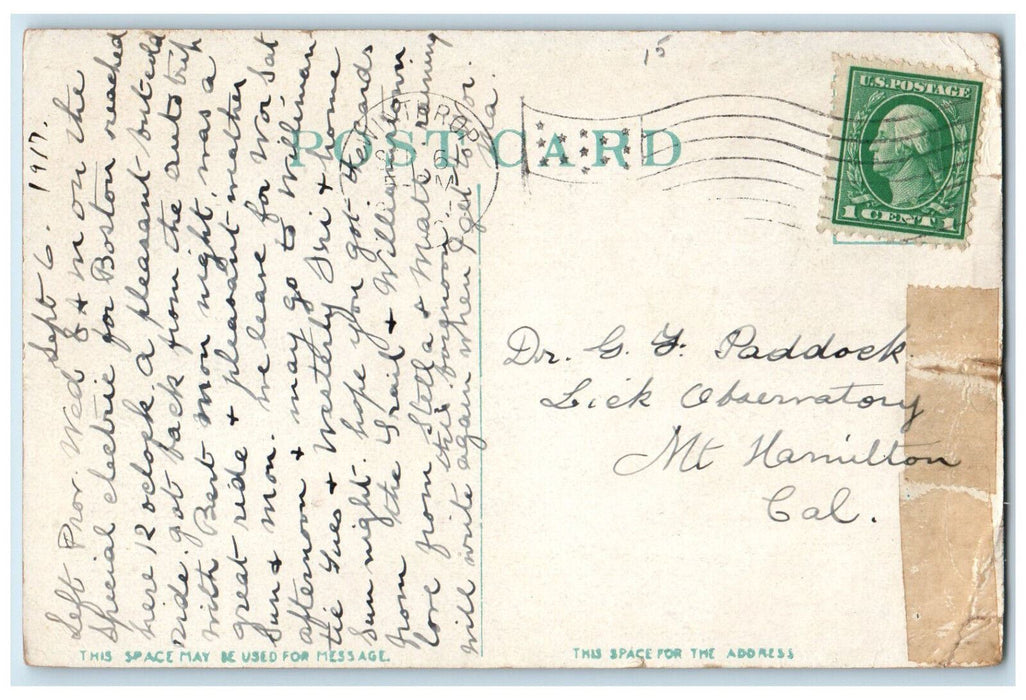 15
POST CARD
WINTHROP
6
U.S. POSTAGE
1 CENT 1
Sept 6. 1917.
Left Prov. Wed 8 + m on the
special electric for Boston reached
here 12 oclock. A pleasant but cold
ride. got back from the auto trip
with Bert mon night, was a
great ride + pleasant weather
we leave for Wor Sat
Sun + Mon. + may go to
afternoon + Westerly Sun + home
the
Sun night. hope you got the cards
from the Trail + Williamstown
love from Stella + Matt
will write again when I get to
Dr. G. F. Paddock
Lick Observatory
Mt Hamilton
Cal.
THIS SPACE MAY BE USED FOR MESSAGE.
THIS SPACE FOR THE ADDRESS